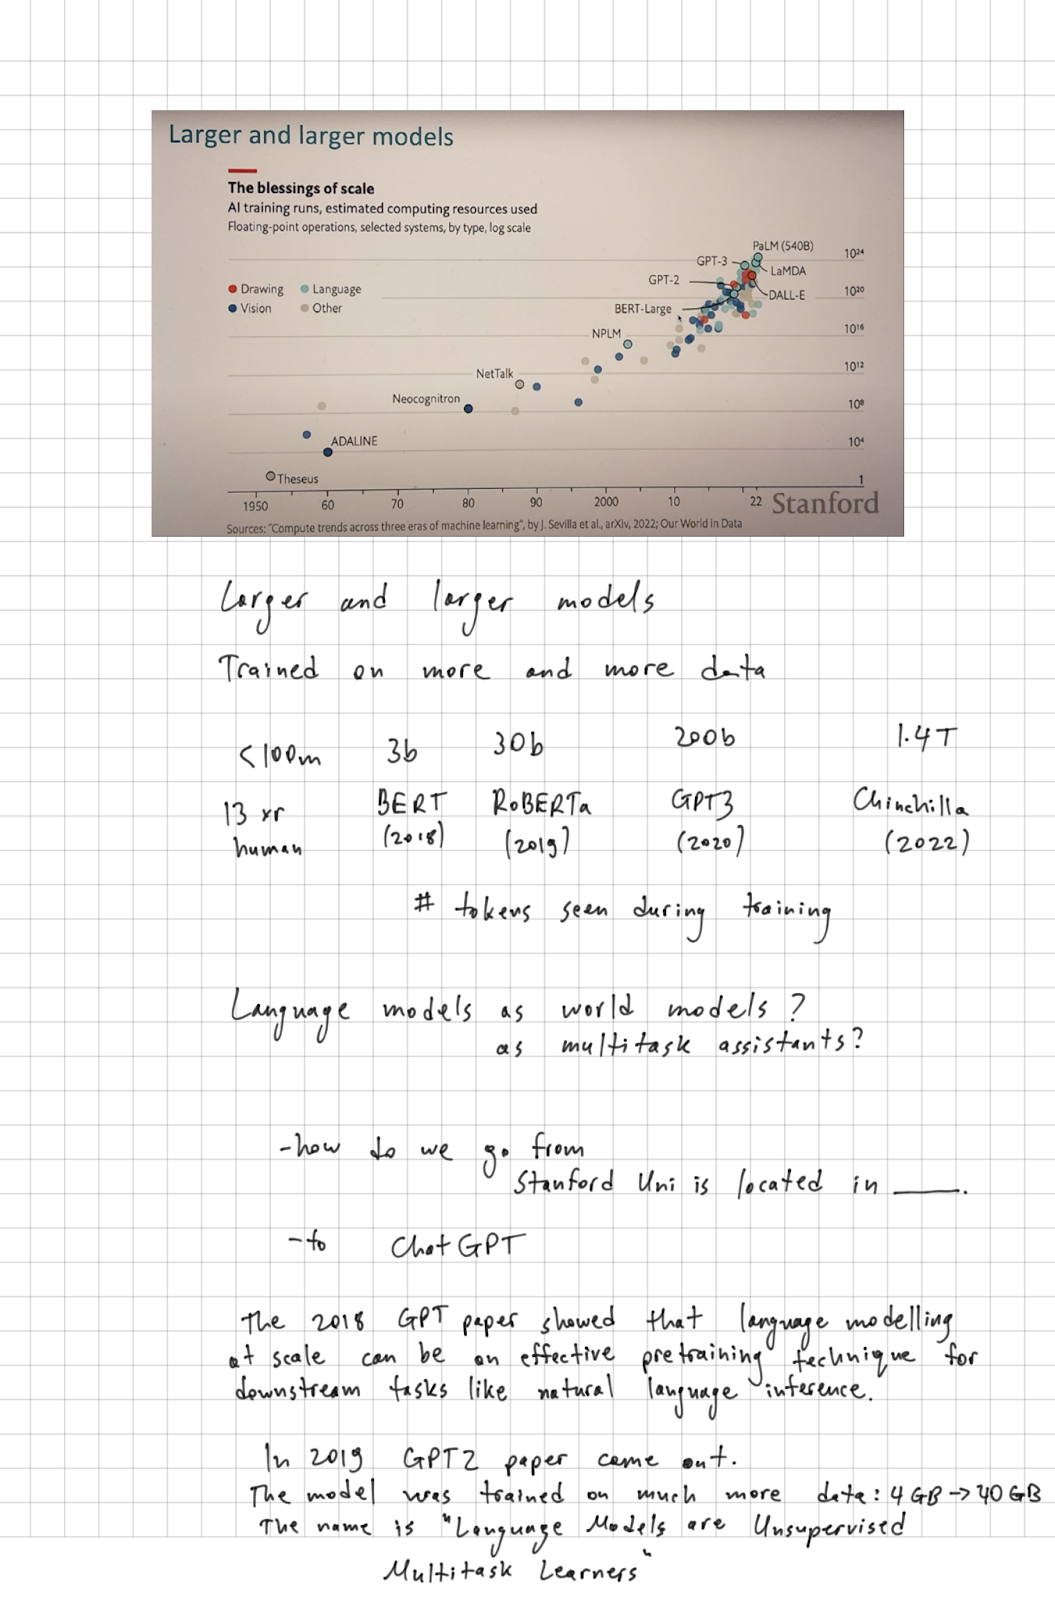 Larger and larger models
The blessings of scale
AI training runs, estimated computing resources used
Floating-point operations, selected systems, by type, log scale
Drawing Language
Vision Other
PaLM (540B)
GPT-3
LaMDA
GPT-2
DALL-E
BERT-Large
NPLM
NetTalk
Neocognitron
ADALINE
Theseus
10²⁴
10²⁰
10¹⁶
10¹²
10⁸
10⁴
1
1950 60 70 80 90 2000 10 22
Stanford
Sources: "Compute trends across three eras of machine learning", by J. Sevilla et al., arXiv, 2022; Our World in Data
Larger and larger models
Trained on more and more data
<100m 3b 30b 200b 1.4T
13 yr BERT RoBERTa GPT3 Chinchilla
human (2018) (2019) (2020) (2022)
# tokens seen during training
Language models as world models?
as multitask assistants?
-how do we go from
Stanford Uni is located in ____.
-to ChatGPT
The 2018 GPT paper showed that language modelling
at scale can be an effective pretraining technique for
downstream tasks like natural language inference.
In 2019 GPT2 paper came out.
The model was trained on much more data: 4 GB → 40 GB
The name is "Language Models are Unsupervised
Multitask Learners"